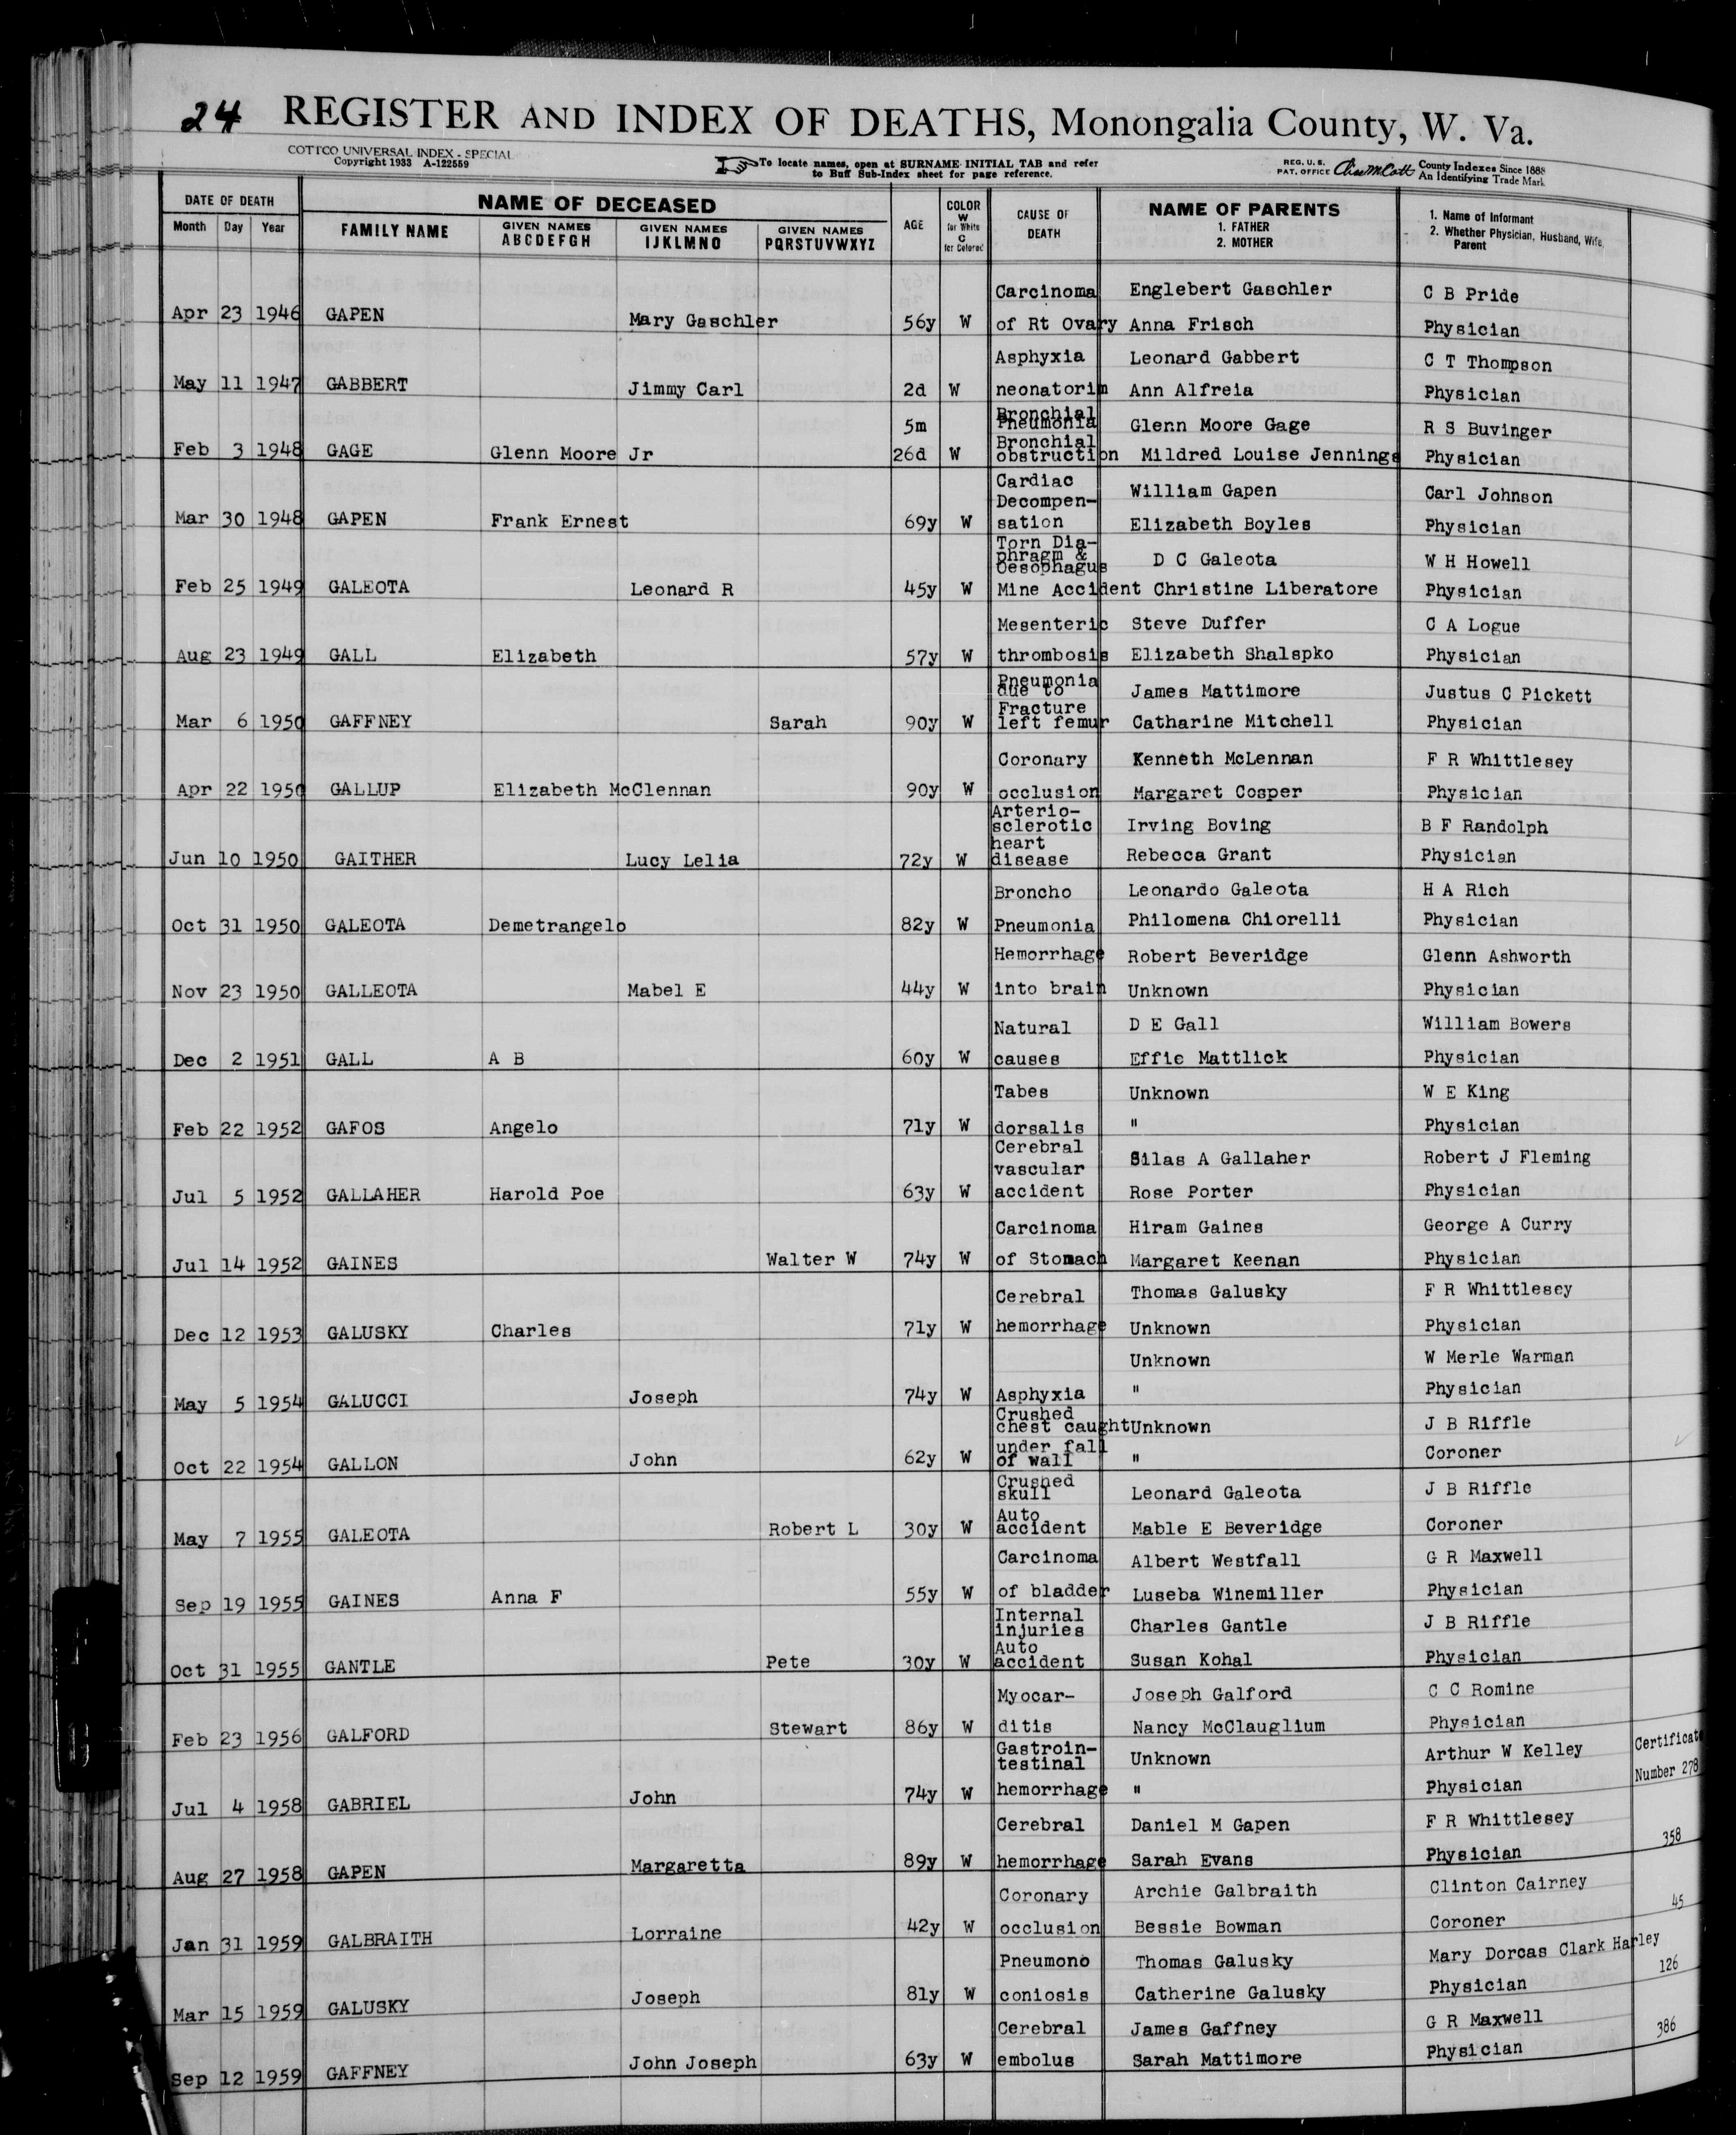 24 REGISTER AND INDEX OF DEATHS, Monongalia County, W. Va.
COTTCO UNIVERSAL INDEX - SPECIAL
Copyright 1933 A-122559
To locate names, open at SURNAME INITIAL TAB and refer
to Buff Sub-Index sheet for page reference.
REG. U. S.
PAT. OFFICE
County Indexes Since 1888
An Identifying Trade Mark
DATE OF DEATH
Month Day Year
NAME OF DECEASED
FAMILY NAME
GIVEN NAMES
ABCDEFGH
GIVEN NAMES
IJKLMNO
GIVEN NAMES
PQRSTUVWXYZ
AGE
COLOR
W
for White
C
for Colored
CAUSE OF
DEATH
NAME OF PARENTS
1. FATHER
2. MOTHER
1. Name of Informant
2. Whether Physician, Husband, Wife,
Parent
Carcinoma Englebert Gaschler C B Pride
Apr 23 1946 GAPEN Mary Gaschler 56y W of Rt Ovary Anna Frisch Physician
Asphyxia Leonard Gabbert C T Thompson
May 11 1947 GABBERT Jimmy Carl 2d W neonatorim Ann Alfreia Physician
Bronchial
5m Pneumonia Glenn Moore Gage R S Buvinger
Bronchial
Feb 3 1948 GAGE Glenn Moore Jr 26d W obstruction Mildred Louise Jennings Physician
Cardiac
Decompen- William Gapen Carl Johnson
Mar 30 1948 GAPEN Frank Ernest 69y W sation Elizabeth Boyles Physician
Torn Dia-
phragm & D C Galeota W H Howell
Oesophagus
Feb 25 1949 GALEOTA Leonard R 45y W Mine Accident Christine Liberatore Physician
Mesenteric Steve Duffer C A Logue
Aug 23 1949 GALL Elizabeth 57y W thrombosis Elizabeth Shalspko Physician
Pneumonia
due to James Mattimore Justus C Pickett
Fracture
Mar 6 1950 GAFFNEY Sarah 90y W left femur Catharine Mitchell Physician
Coronary Kenneth McLennan F R Whittlesey
Apr 22 1950 GALLUP Elizabeth McClennan 90y W occlusion Margaret Cosper Physician
Arterio-
sclerotic Irving Boving B F Randolph
heart
Jun 10 1950 GAITHER Lucy Lelia 72y W disease Rebecca Grant Physician
Broncho Leonardo Galeota H A Rich
Oct 31 1950 GALEOTA Demetrangelo 82y W Pneumonia Philomena Chiorelli Physician
Hemorrhage Robert Beveridge Glenn Ashworth
Nov 23 1950 GALLEOTA Mabel E 44y W into brain Unknown Physician
Natural D E Gall William Bowers
Dec 2 1951 GALL A B 60y W causes Effie Mattlick Physician
Tabes Unknown W E King
Feb 22 1952 GAFOS Angelo 71y W dorsalis " Physician
Cerebral
vascular Silas A Gallaher Robert J Fleming
Jul 5 1952 GALLAHER Harold Poe 63y W accident Rose Porter Physician
Carcinoma Hiram Gaines George A Curry
Jul 14 1952 GAINES Walter W 74y W of Stomach Margaret Keenan Physician
Cerebral Thomas Galusky F R Whittlesey
Dec 12 1953 GALUSKY Charles 71y W hemorrhage Unknown Physician
Unknown W Merle Warman
May 5 1954 GALUCCI Joseph 74y W Asphyxia " Physician
Crushed
chest caught Unknown J B Riffle
under fall
Oct 22 1954 GALLON John 62y W of wall " Coroner
Crushed
skull Leonard Galeota J B Riffle
Auto
May 7 1955 GALEOTA Robert L 30y W accident Mable E Beveridge Coroner
Carcinoma Albert Westfall G R Maxwell
Sep 19 1955 GAINES Anna F 55y W of bladder Luseba Winemiller Physician
Internal
injuries Charles Gantle J B Riffle
Auto
Oct 31 1955 GANTLE Pete 30y W accident Susan Kohal Physician
Myocar- Joseph Galford C C Romine
Feb 23 1956 GALFORD Stewart 86y W ditis Nancy McClauglium Physician
Gastroin-
testinal Unknown Arthur W Kelley Certificate
Jul 4 1958 GABRIEL John 74y W hemorrhage " Physician Number 278
Cerebral Daniel M Gapen F R Whittlesey
Aug 27 1958 GAPEN Margaretta 89y W hemorrhage Sarah Evans Physician 358
Coronary Archie Galbraith Clinton Cairney
Jan 31 1959 GALBRAITH Lorraine 42y W occlusion Bessie Bowman Coroner 45
Pneumono Thomas Galusky Mary Dorcas Clark Harley
Mar 15 1959 GALUSKY Joseph 81y W coniosis Catherine Galusky Physician 126
Cerebral James Gaffney G R Maxwell
Sep 12 1959 GAFFNEY John Joseph 63y W embolus Sarah Mattimore Physician 386